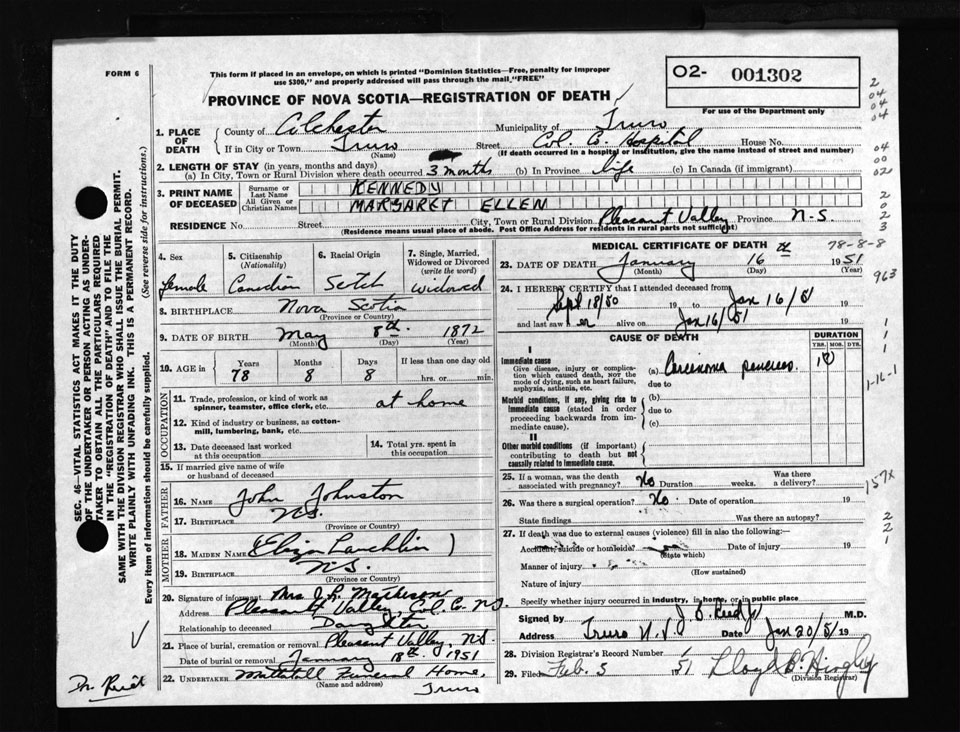 FORM 6
This form if placed in an envelope, on which is printed "Dominion Statistics—Free, penalty for improper
use $300," and properly addressed will pass through the mail "FREE"
PROVINCE OF NOVA SCOTIA—REGISTRATION OF DEATH
O2- 001302
For use of the Department only
1. PLACE OF DEATH
County of Colchester Municipality of Truro
If in City or Town Truro Street Col. Co. Hospital House No.
(Name) (If death occurred in a hospital or institution, give the name instead of street and number)
2. LENGTH OF STAY (in years, months and days)
(a) In City, Town or Rural Division where death occurred 3 months (b) In Province life (c) In Canada (if immigrant)
3. PRINT NAME OF DECEASED
Surname or Last Name KENNEDY
All Given or Christian Names MARGARET ELLEN
RESIDENCE No. Street City, Town or Rural Division Pleasant Valley Province N-S.
(Residence means usual place of abode. Post Office Address for residents in rural parts not sufficient)
4. Sex
female
5. Citizenship (Nationality)
Canadian
6. Racial Origin
Scotch
7. Single, Married, Widowed or Divorced (write the word)
widowed
8. BIRTHPLACE Nova Scotia
(Province or Country)
9. DATE OF BIRTH May 8th 1872
(Month) (Day) (Year)
10. AGE in Years Months Days If less than one day old
78 8 8 hrs. or min.
OCCUPATION
11. Trade, profession, or kind of work as spinner, teamster, office clerk, etc. at home
12. Kind of industry or business, as cotton-mill, lumbering, bank, etc.
13. Date deceased last worked at this occupation
14. Total yrs. spent in this occupation
15. If married give name of wife or husband of deceased
FATHER
16. NAME John Johnston
17. BIRTHPLACE N.S.
(Province or Country)
MOTHER
18. MAIDEN NAME (Eliza Lauchlin)
19. BIRTHPLACE N.S.
(Province or Country)
20. Signature of informant Mrs J. L. Matheson
Address Pleasant Valley, Col. Co. N.S.
Relationship to deceased Daughter
21. Place of burial, cremation or removal Pleasant Valley, N.S.
Date of burial or removal January 18th 1951
22. UNDERTAKER Funeral Home,
(Name and address) Truro
MEDICAL CERTIFICATE OF DEATH
23. DATE OF DEATH January 16th 1951
(Month) (Day) (Year)
24. I HEREBY CERTIFY that I attended deceased from
Sept 18/50 19 to Jan 16/51 19
and last saw her alive on Jan 16/51 19
CAUSE OF DEATH
DURATION
YRS. MOS. DYS.
I
Immediate cause
Give disease, injury or complication which caused death, NOT the mode of dying, such as heart failure, asphyxia, asthenia, etc.
(a) Carcinoma pancreas.
due to
Morbid conditions, if any, giving rise to immediate cause (stated in order proceeding backwards from immediate cause).
(b)
due to
(c)
II
Other morbid conditions (if important) contributing to death but not causally related to immediate cause.
25. If a woman, was the death associated with pregnancy? No Duration weeks. Was there a delivery?
26. Was there a surgical operation? No. Date of operation 19
State findings Was there an autopsy?
27. If death was due to external causes (violence) fill in also the following:—
Accident, suicide or homicide? Date of injury 19
(State which)
Manner of injury
(How sustained)
Nature of injury
Specify whether injury occurred in industry, in home, or in public place
Signed by M.D.
Address Truro N.S. Date Jan 20/51 19
28. Division Registrar's Record Number
29. Filed Feb. 5 51
(Division Registrar)
SEC. 46—VITAL STATISTICS ACT MAKES IT THE DUTY
OF THE UNDERTAKER OR PERSON ACTING AS UNDER-
TAKER TO OBTAIN ALL THE PARTICULARS REQUIRED
IN THE "REGISTRATION OF DEATH" AND TO FILE THE
SAME WITH THE DIVISION REGISTRAR WHO SHALL ISSUE THE BURIAL PERMIT.
WRITE PLAINLY WITH UNFADING INK. THIS IS A PERMANENT RECORD.
Every item of information should be carefully supplied. (See reverse side for instructions.)
2
04
04
04
04
00
02
2
0
2
3
78-8-8
963
1
1
1
1-16-1
157X
2
2
1